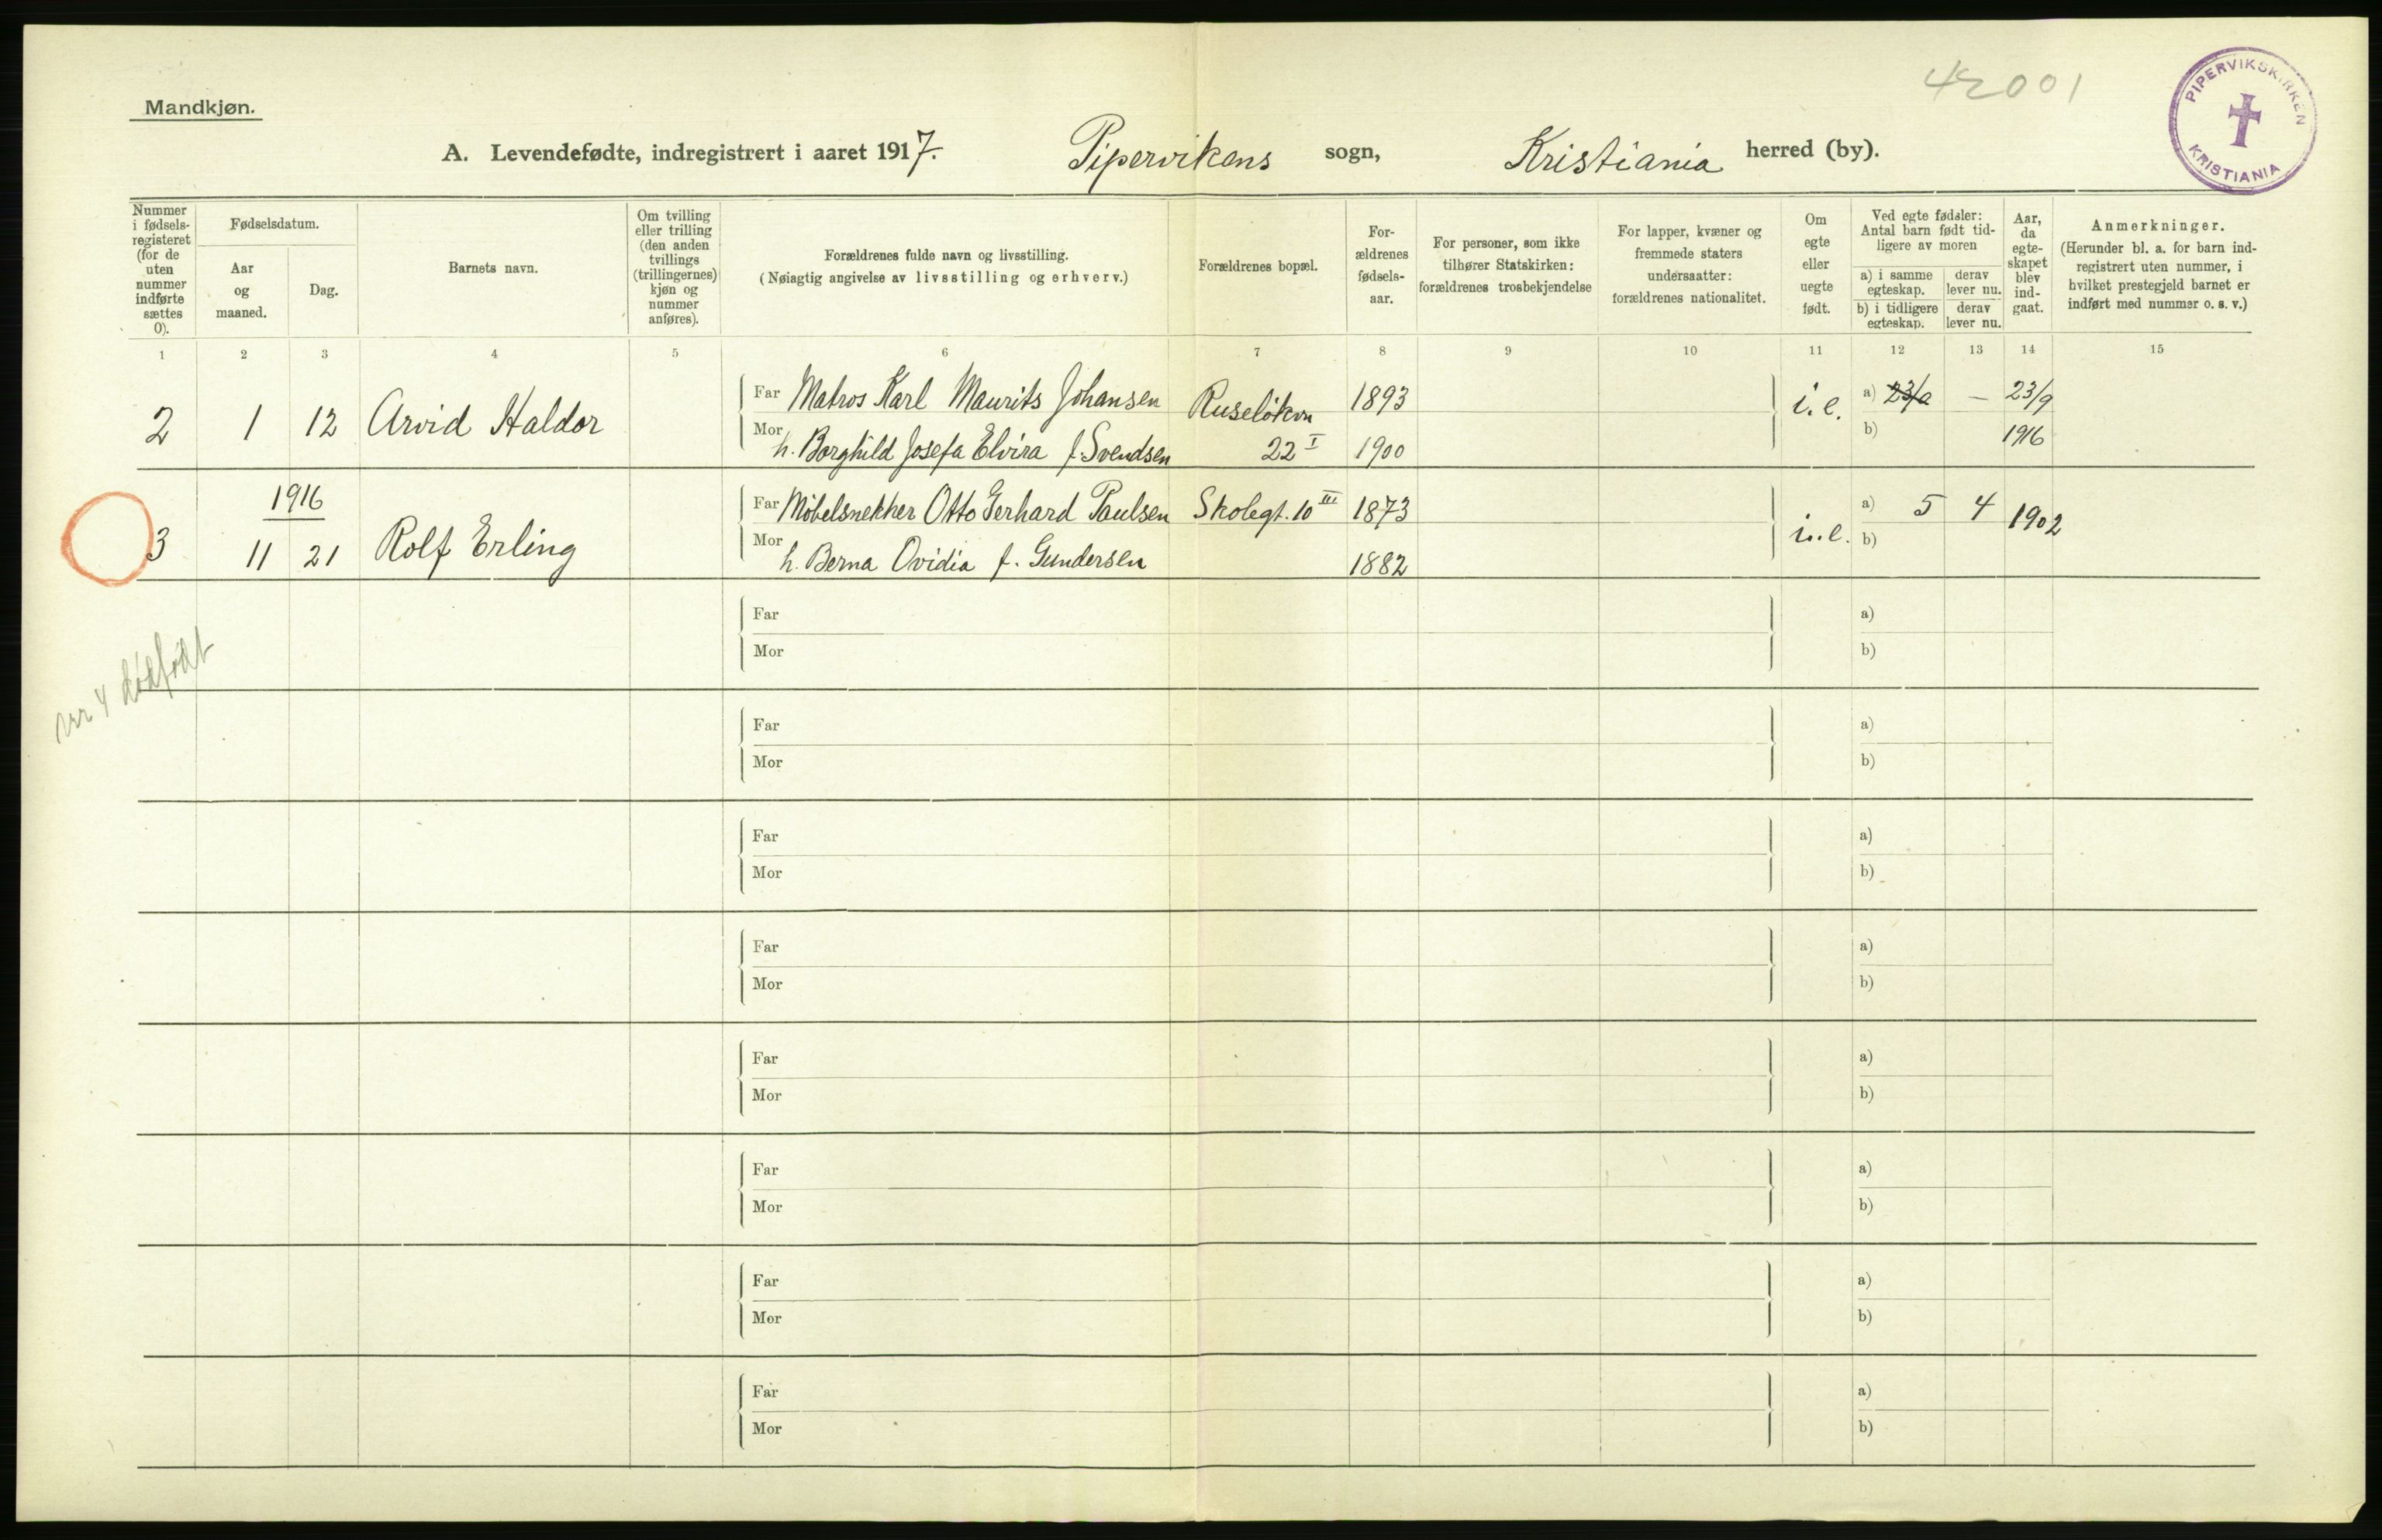 42001
PIPERVIKSKIRKEN
KRISTIANIA
Mandkjøn.
A. Levendefødte, indregistrert i aaret 1917. Pipervikens sogn, Kristiania herred (by).
Nummer i fødsels-registeret (for de uten nummer indførte sættes 0).
Fødselsdatum.
Aar og maaned.
Dag.
Barnets navn.
Om tvilling eller trilling (den anden tvillings (trillingernes) kjøn og nummer anføres).
Forældrenes fulde navn og livsstilling.
(Nøiagtig angivelse av livsstilling og erhverv.)
Forældrenes bopæl.
For-ældrenes fødsels-aar.
For personer, som ikke tilhører Statskirken: forældrenes trosbekjendelse
For lapper, kvæner og fremmede staters undersaatter: forældrenes nationalitet.
Om egte eller uegte født.
Ved egte fødsler: Antal barn født tid-ligere av moren
a) i samme egteskap.
derav lever nu.
b) i tidligere egteskap.
derav lever nu.
Aar, da egte-skapet blev ind-gaat.
Anmerkninger.
(Herunder bl. a. for barn ind-registrert uten nummer, i hvilket prestegjeld barnet er indført med nummer o. s. v.)
1 2 3 4 5 6 7 8 9 10 11 12 13 14 15
2 1 12 Arvid Haldor
Far Matros Karl Maurits Johansen Ruseløkvn 1893 i.e. a) — 23/9
Mor h. Borghild Josefa Elvira f. Svendsen 22 I 1900 b) 1916
1916
3 11 21 Rolf Erling
Far Møbelsnekker Otto Gerhard Paulsen Skolegt. 10 III 1873 i.e. a) 5 4 1902
Mor h. Berna Ovidia f. Gundersen 1882 b)
nr 4 dødfødt
Far a)
Mor b)
Far a)
Mor b)
Far a)
Mor b)
Far a)
Mor b)
Far a)
Mor b)
Far a)
Mor b)
Far a)
Mor b)
Far a)
Mor b)